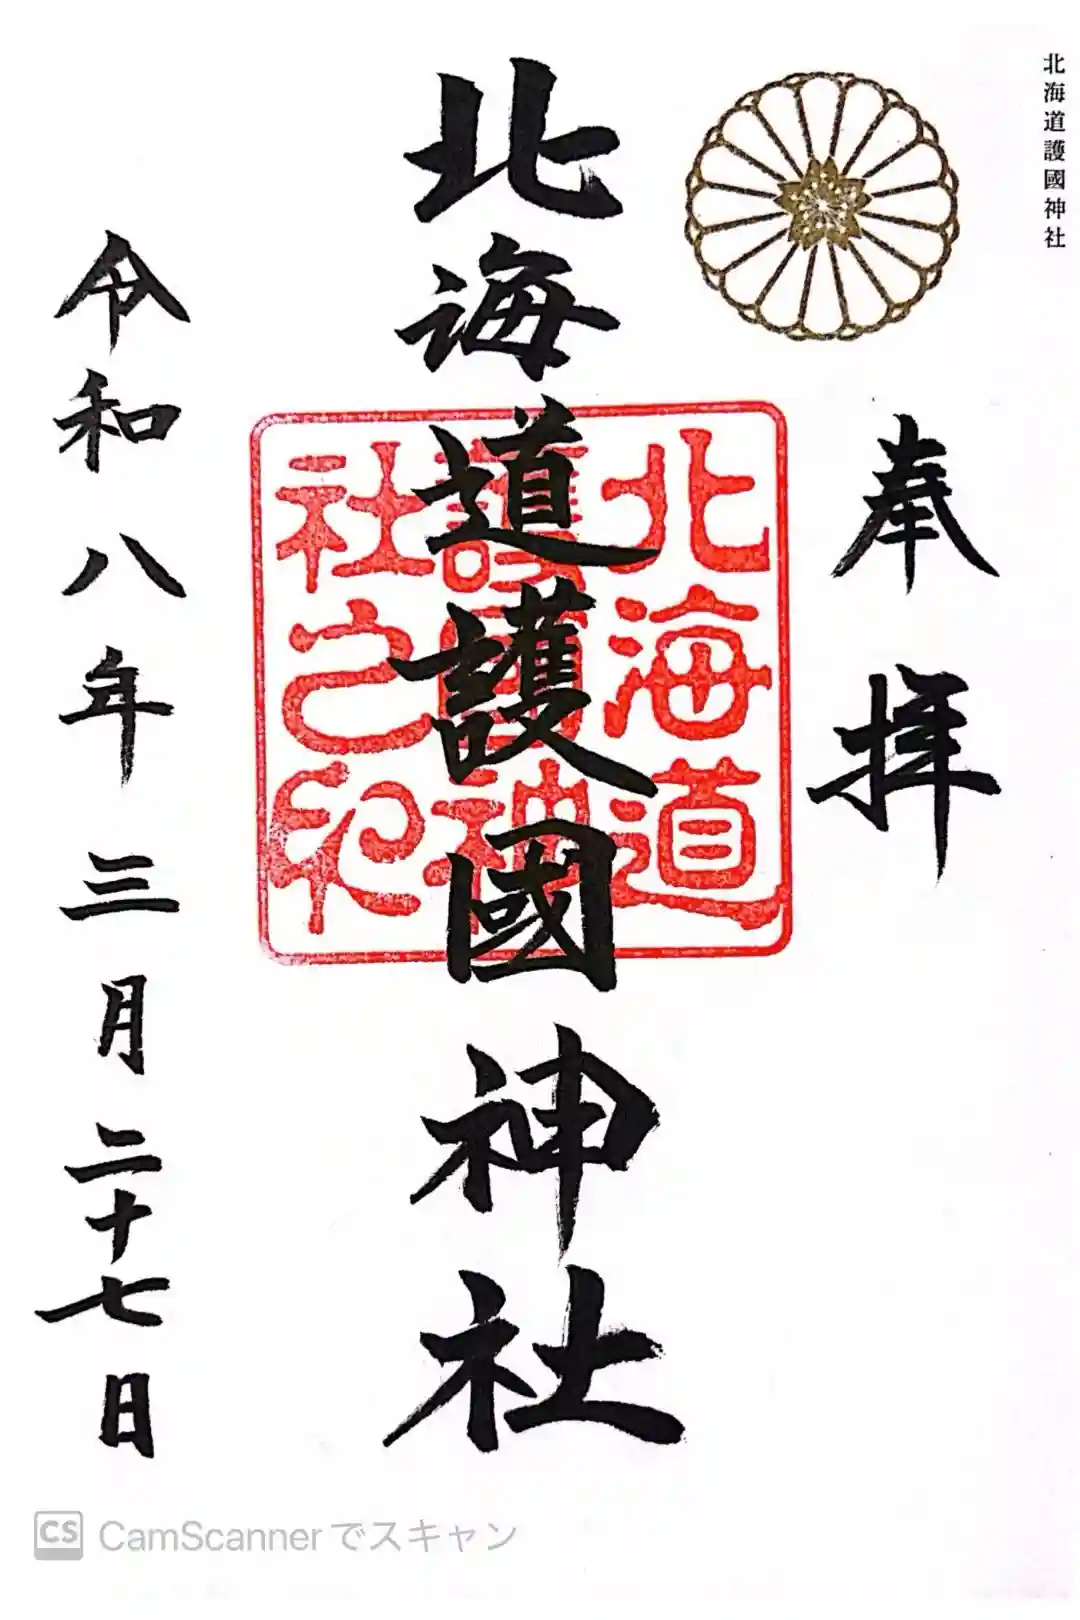 北海道護國神社
奉拝
北海道護國神社
北海道
護國神
社之印
令和八年三月二十七日
CS CamScannerでスキャン